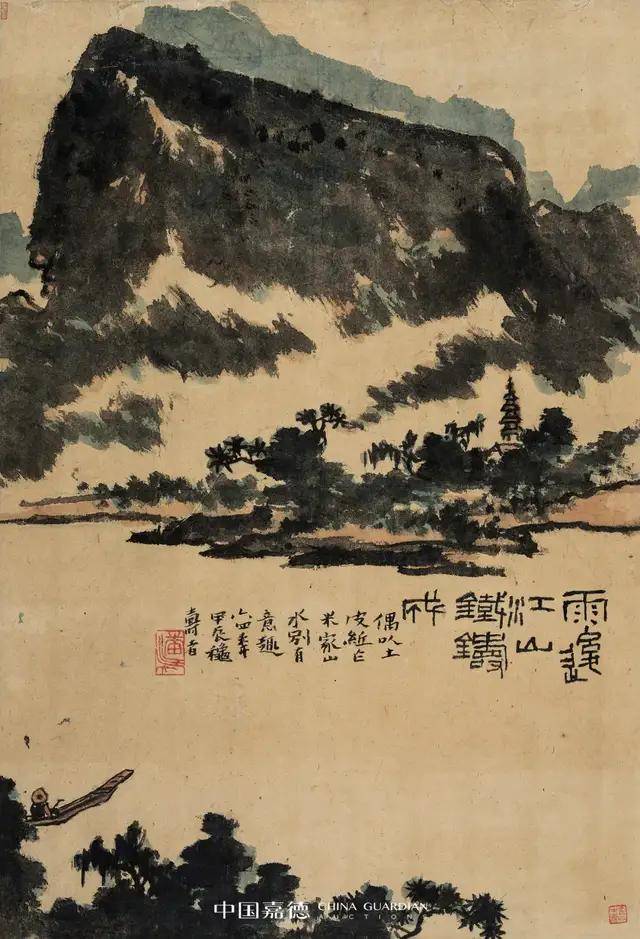 雨後
江山
鐵鑄
成
偶以土
皮紙作
米家山
水別有
意趣
六四年
甲辰穐
壽者
中国嘉德 CHINA GUARDIAN
AUCTIONS